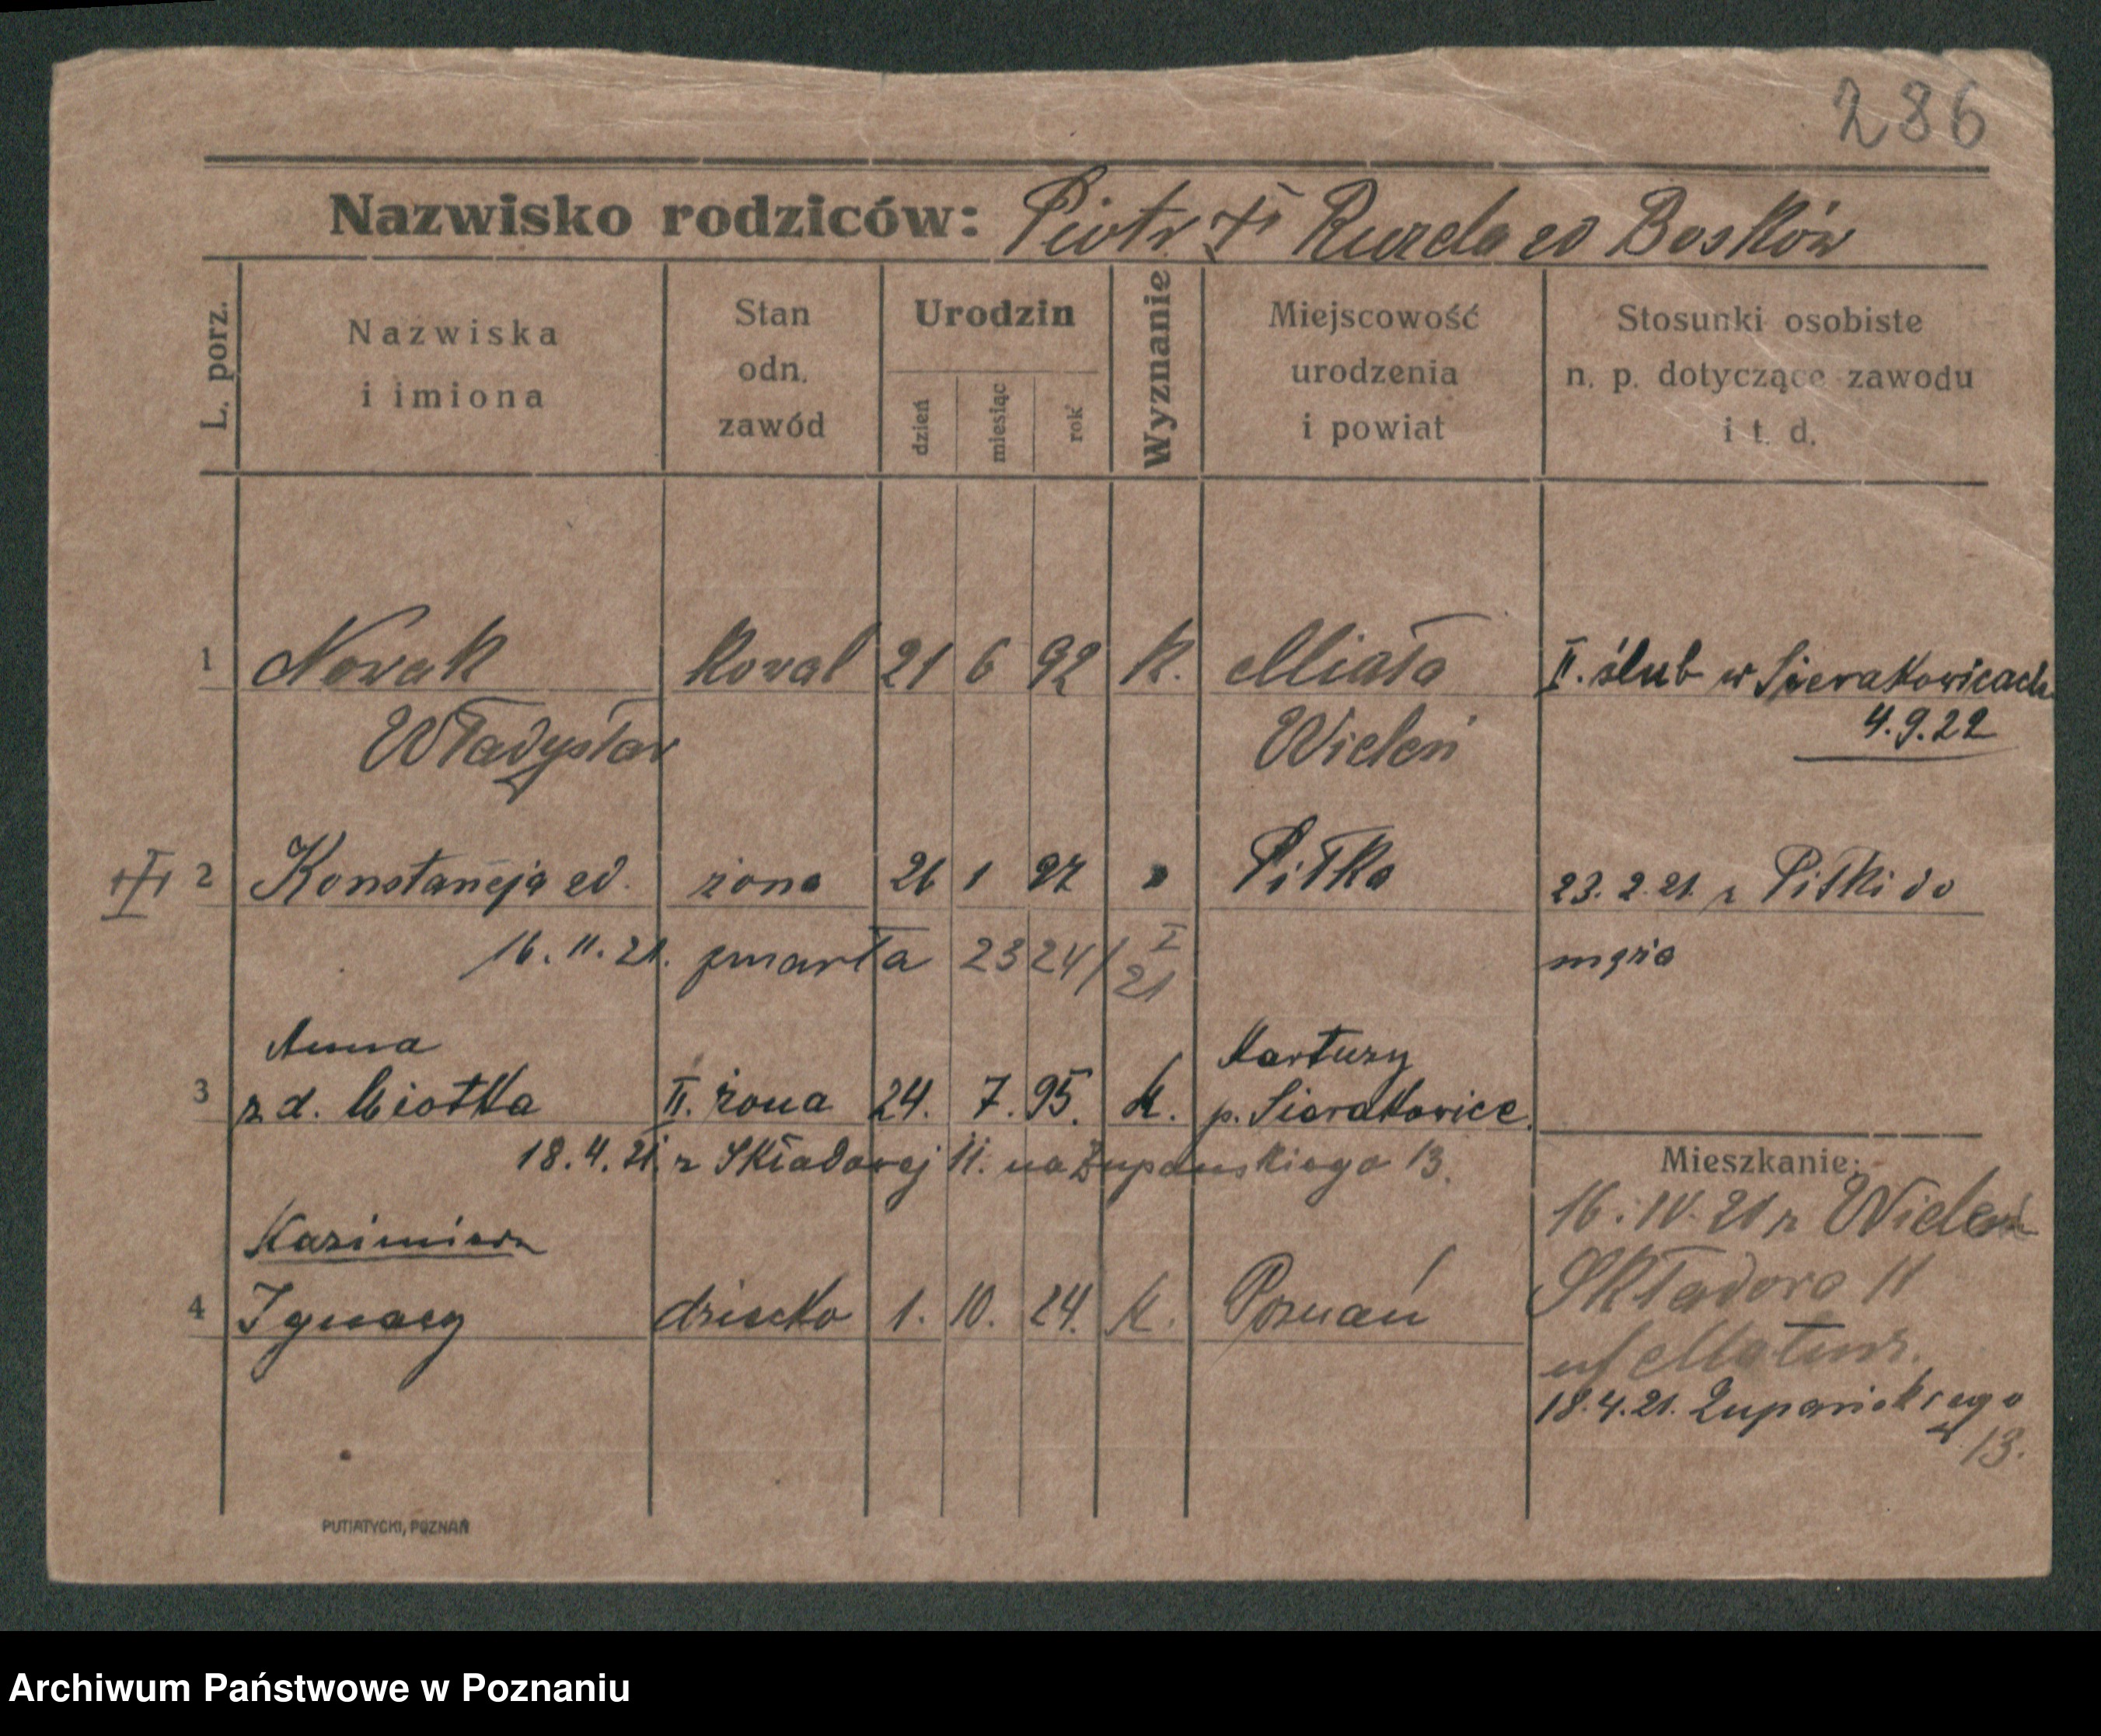 286
Nazwisko rodziców: Piotr Ruzela zd Bosków
L. porz.
Nazwiska i imiona
Stan odn. zawód
Urodzin
dzień
miesiąc
rok
Wyznanie
Miejscowość urodzenia i powiat
Stosunki osobiste n. p. dotyczące zawodu i t. d.
1 Nowak kowal 21 6 92 K. Miała II. ślub w Sierakowicach
Władysław Wieleń 4.9.22
2 Konstancja zd. żona 26 1 97 " Piłka 23.2.21. z Piłki do
16.11.21. zmarła 2324/I 21 męża
Anna Kartuzy
3 z d. Miotka II. żona 24. 7. 95. K. p. Sierakowice.
18.4.21. z Składowej 11. na Żupańskiego 13.
Mieszkanie:
16.IV.21 z Wieleń
Kazimierz
Składowa 11
4 Ignacy dziecko 1. 10. 24. K. Poznań
18.4.21. Żupańskiego
13.
PUTIATYCKI, POZNAŃ
Archiwum Państwowe w Poznaniu